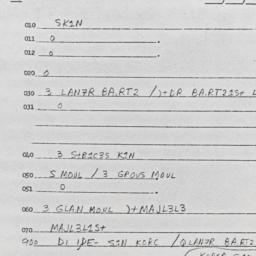 010 SK1N
011 0
012 0
020 0
030 3 LAN7R BA.RT2 / )+DR BA.RT21S+ L
031 0
040 3 S+R1C3S K1N
050 S.MOUL / 3 GROUS MOUL
051 0
060 3 GLAN MOUL )+MAJL3L3
070 MAJL3L1S+
900 D1 1DE- S1N KORC / QLAN7R BA.RT2